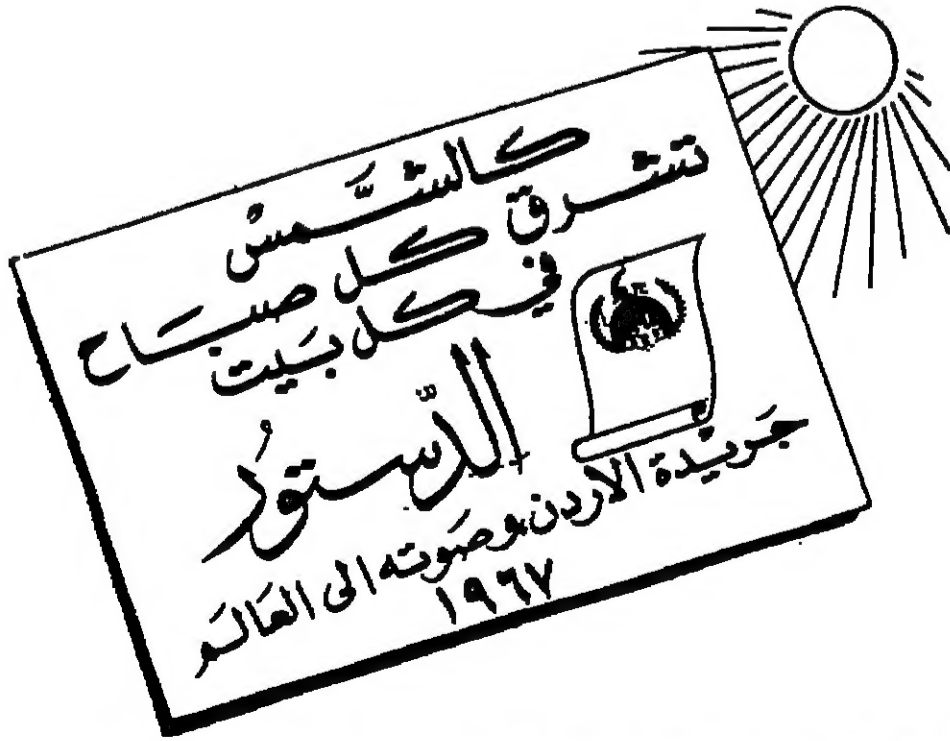 كالشَّمسْ
تشرق كل صبَاح
في كل بَيت
الدّستورُ
جَريْدة الأردن وصَوته الى العَالَم
١٩٦٧